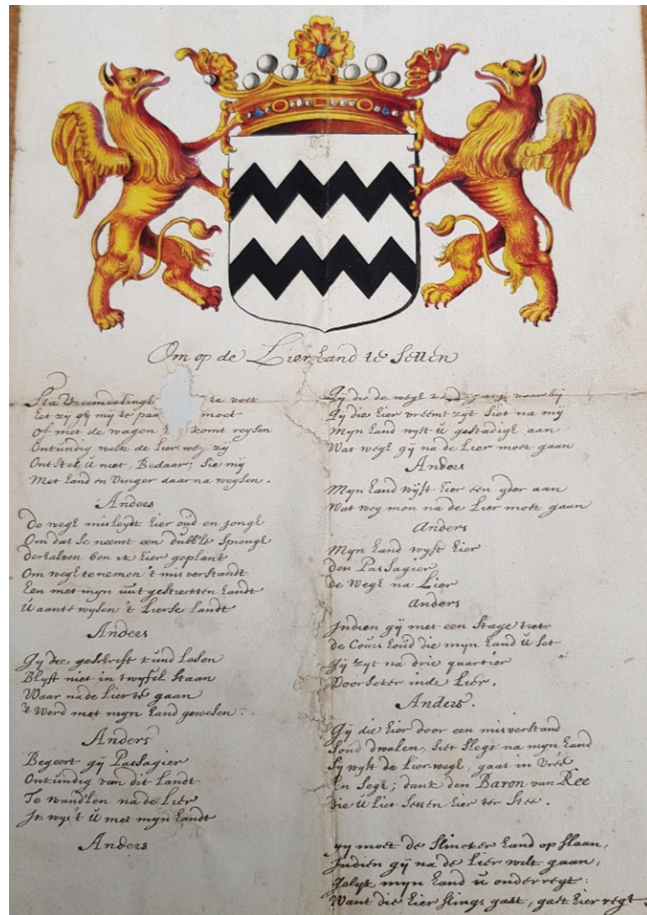 Om op de Lier hand te setten
Sta Vreemdelingh te voet
Het zij gij mij te moet
Of met de wagen komt reysen
Onkundig welk de Lier weg zij
Ontstel U niet, Bedaar; Sie mij
Met hand en Vinger daar na weysen.
Anders
De wegh misleydt hier oud en jongh
Om dat se neemt een dubble sprongh
Derhalven ben ik hier geplant
Om wegh te nemen 't misverstandt
Een met mijn uut gestreckten handt
U aante wysen 't Lierse Landt
Anders
Gy die geschrift kund Lesen
Blyft niet in twyfel staan
Waar na de Lier te gaan
't Werd met myn hand gewesen.
Anders
Begeert gy Passagier
Onkundig van dit Landt
Te wandlen na de Lier
Ik wys't U met myn handt
Anders
Gy die de wegh voorby
Gy die hier vreemt zyt Siet na my
Myn hand wyst U gestadigh aan
Wat wegh gy na de Lier moet gaan
Anders
Myn hand wyst hier een yder aan
Wat weg men na de Lier moet gaan
Anders
Myn hand wyst hier
den Passagier
de Wegh na Lier
Anders
Indien gy met een Stage tret
de Cours houd die myn hand U set
Gy zyt na drie quartier
Voorseker inde Lier.
Anders.
Gy die hier door een misverstand
Sond dwalen, siet slegs na myn hand
Sy wyst de Lier wegh, gaat in Vreê
En Segt; dank den Baron van Ree
die U Liet Setten hier ter Steê.
gy moet de Slincker hand op slaan,
Indien gy na de Lier wilt gaan,
Gelyk myn hand U onderregt:
Want die hier slings gaat, gaat hier regt.